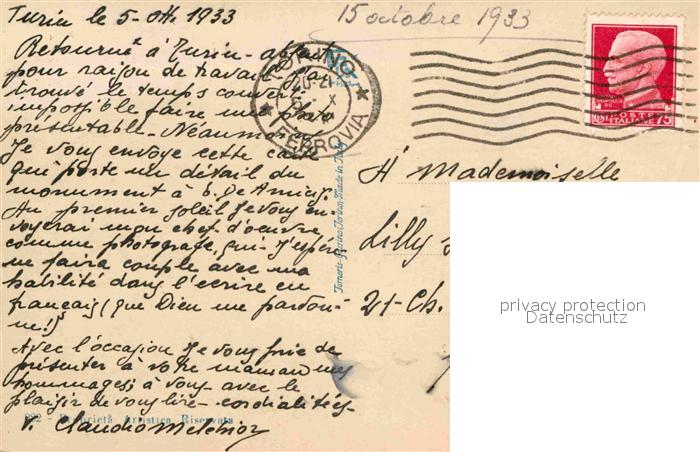 Turin le 5- Ott. 1933
15 octobre 1933
Retourné à Turin-
pour raison de travail- j'ai
trouvé le temps couvert
impossible faire une photo
présentable- Néaumoins
Je vous envoye cette carte
qui porte un détail du
monument à E. De Amicis
Au premier soleil Je vous en-
voyerai mon chef d'oeuvre
comme photografe, qui- J'espère
ne faira couple avec ma
habilité dans l'ecrire en
français (que Dieu me pardon-
ne!)
Avec l'occasion Je vous prie de
présenter à votre maman mes
hommages; à vous avec le
plaisir de vous lire- cordialités-
V. Claudio Melchior
292 - Proprietà Artistica Riservata
TORINO
20-21
X
FERROVIA
POSTE
ITALIANE
75
Made in Italy
A Mademoiselle
Lilly
21- Ch.
privacy protection
Datenschutz